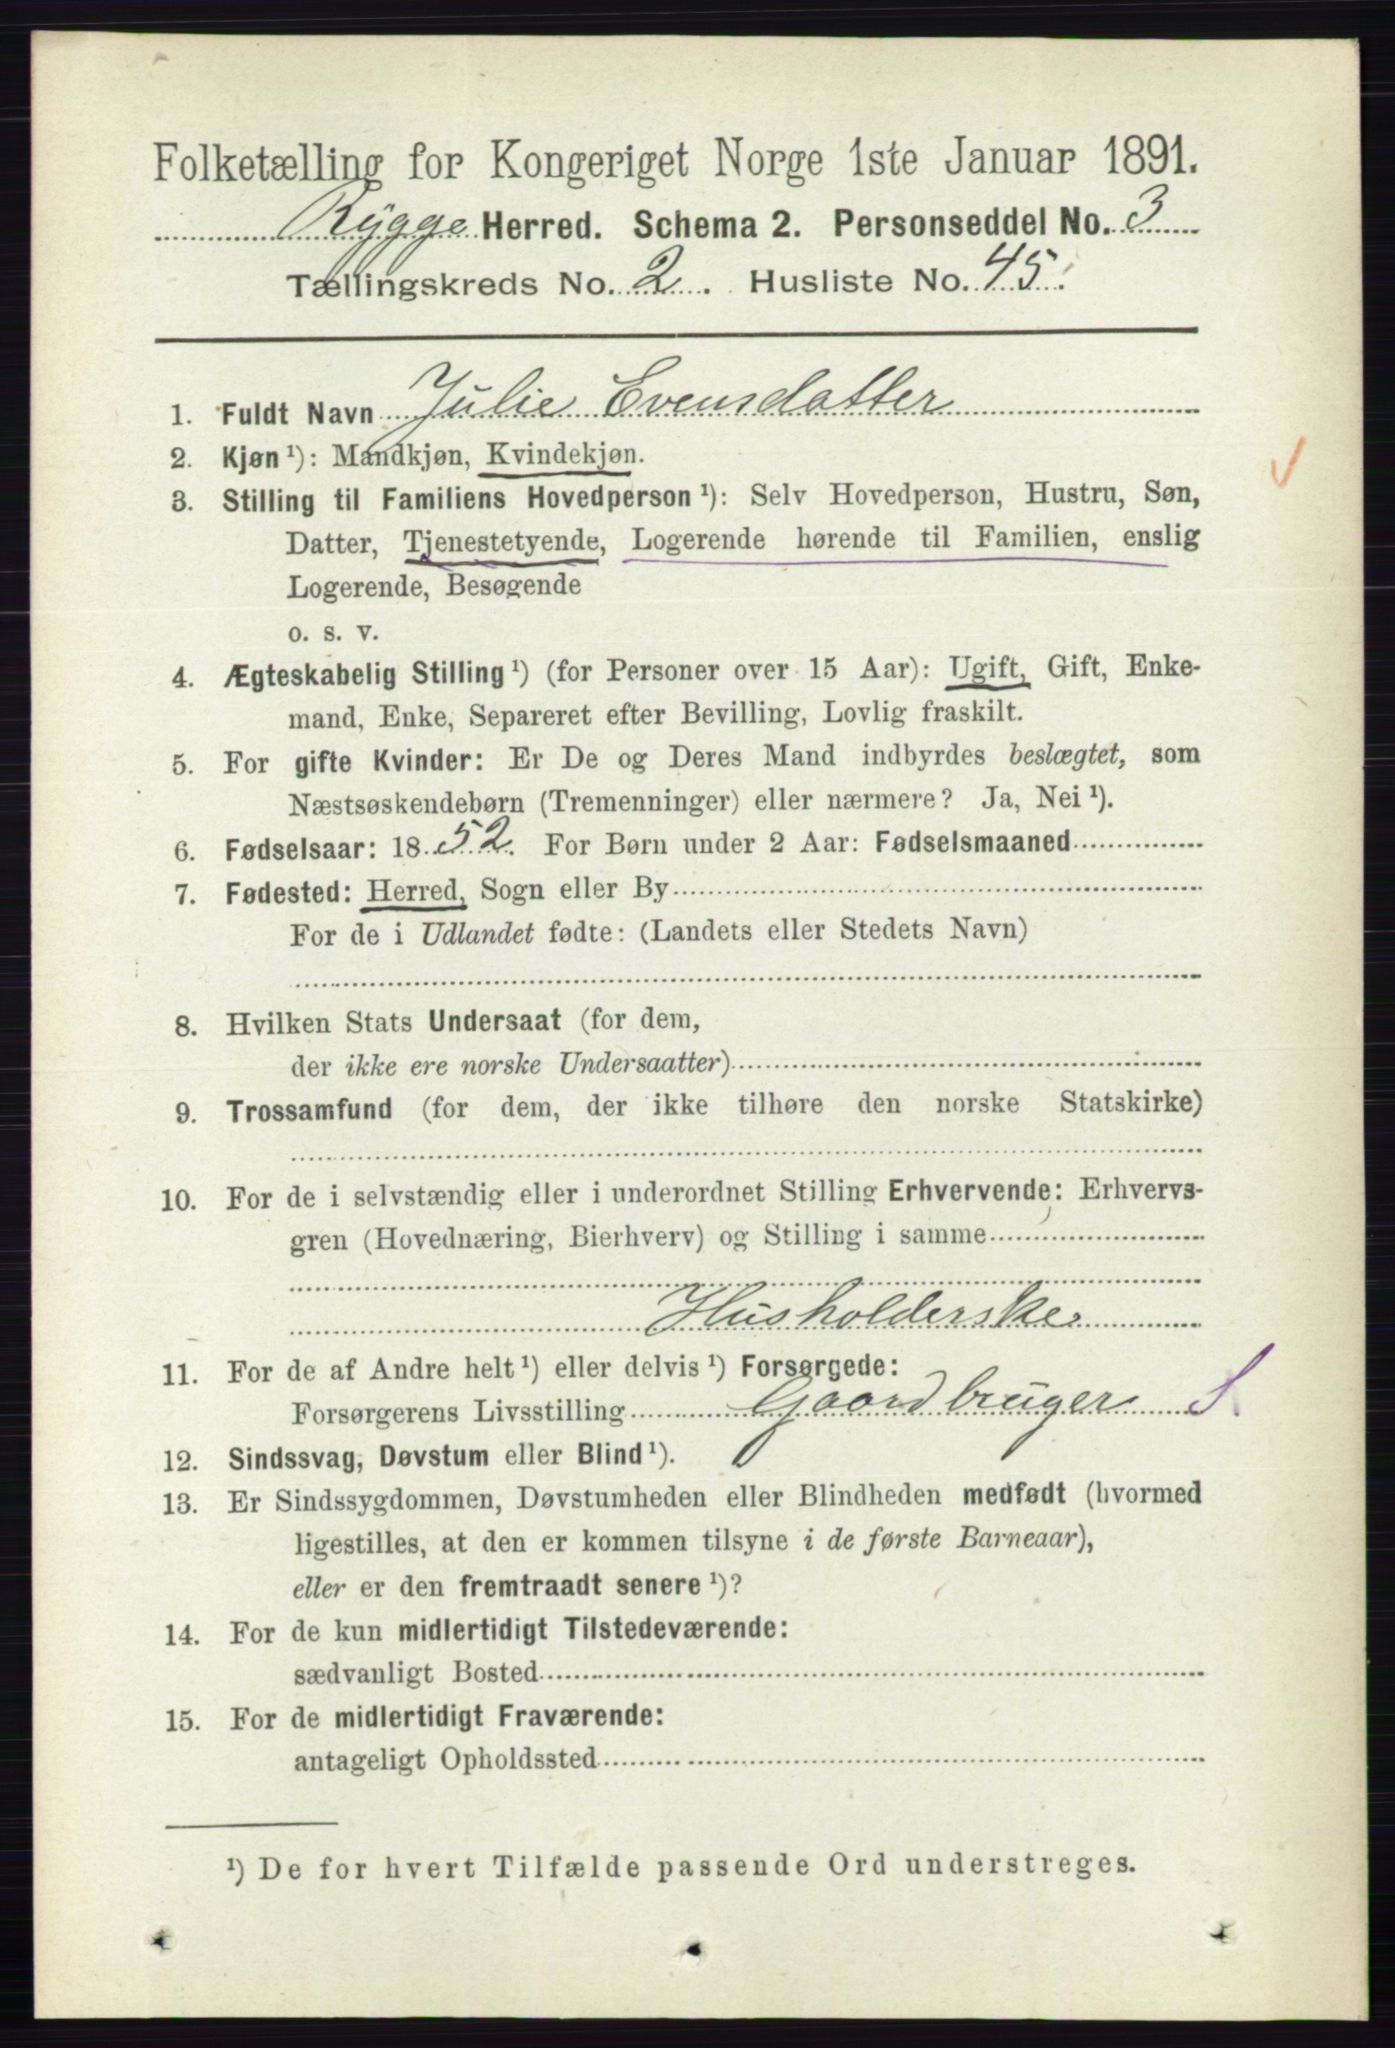 Folketælling for Kongeriget Norge 1ste Januar 1891.
Rygge Herred. Schema 2. Personseddel No. 3
Tællingskreds No. 2. Husliste No. 45.
1. Fuldt Navn Julie Evensdatter
2. Kjøn ¹): Mandkjøn, Kvindekjøn.
3. Stilling til Familiens Hovedperson ¹): Selv Hovedperson, Hustru, Søn,
Datter, Tjenestetyende, Logerende hørende til Familien, enslig
Logerende, Besøgende
o. s. v.
4. Ægteskabelig Stilling ¹) (for Personer over 15 Aar): Ugift, Gift, Enke-
mand, Enke, Separeret efter Bevilling, Lovlig fraskilt.
5. For gifte Kvinder: Er De og Deres Mand indbyrdes beslægtet, som
Næstsøskendebørn (Tremenninger) eller nærmere? Ja, Nei ¹).
6. Fødselsaar: 1852. For Børn under 2 Aar: Fødselsmaaned
7. Fødested: Herred, Sogn eller By
For de i Udlandet fødte: (Landets eller Stedets Navn)
8. Hvilken Stats Undersaat (for dem,
der ikke ere norske Undersaatter)
9. Trossamfund (for dem, der ikke tilhøre den norske Statskirke)
10. For de i selvstændig eller i underordnet Stilling Erhvervende: Erhvervs-
gren (Hovednæring, Bierhverv) og Stilling i samme
Husholderske
11. For de af Andre helt ¹) eller delvis ¹) Forsørgede:
Forsørgerens Livsstilling Gaardbruger S
12. Sindssvag, Døvstum eller Blind ¹).
13. Er Sindssygdommen, Døvstumheden eller Blindheden medfødt (hvormed
ligestilles, at den er kommen tilsyne i de første Barneaar),
eller er den fremtraadt senere ¹)?
14. For de kun midlertidigt Tilstedeværende:
sædvanligt Bosted
15. For de midlertidigt Fraværende:
antageligt Opholdssted
¹) De for hvert Tilfælde passende Ord understreges.